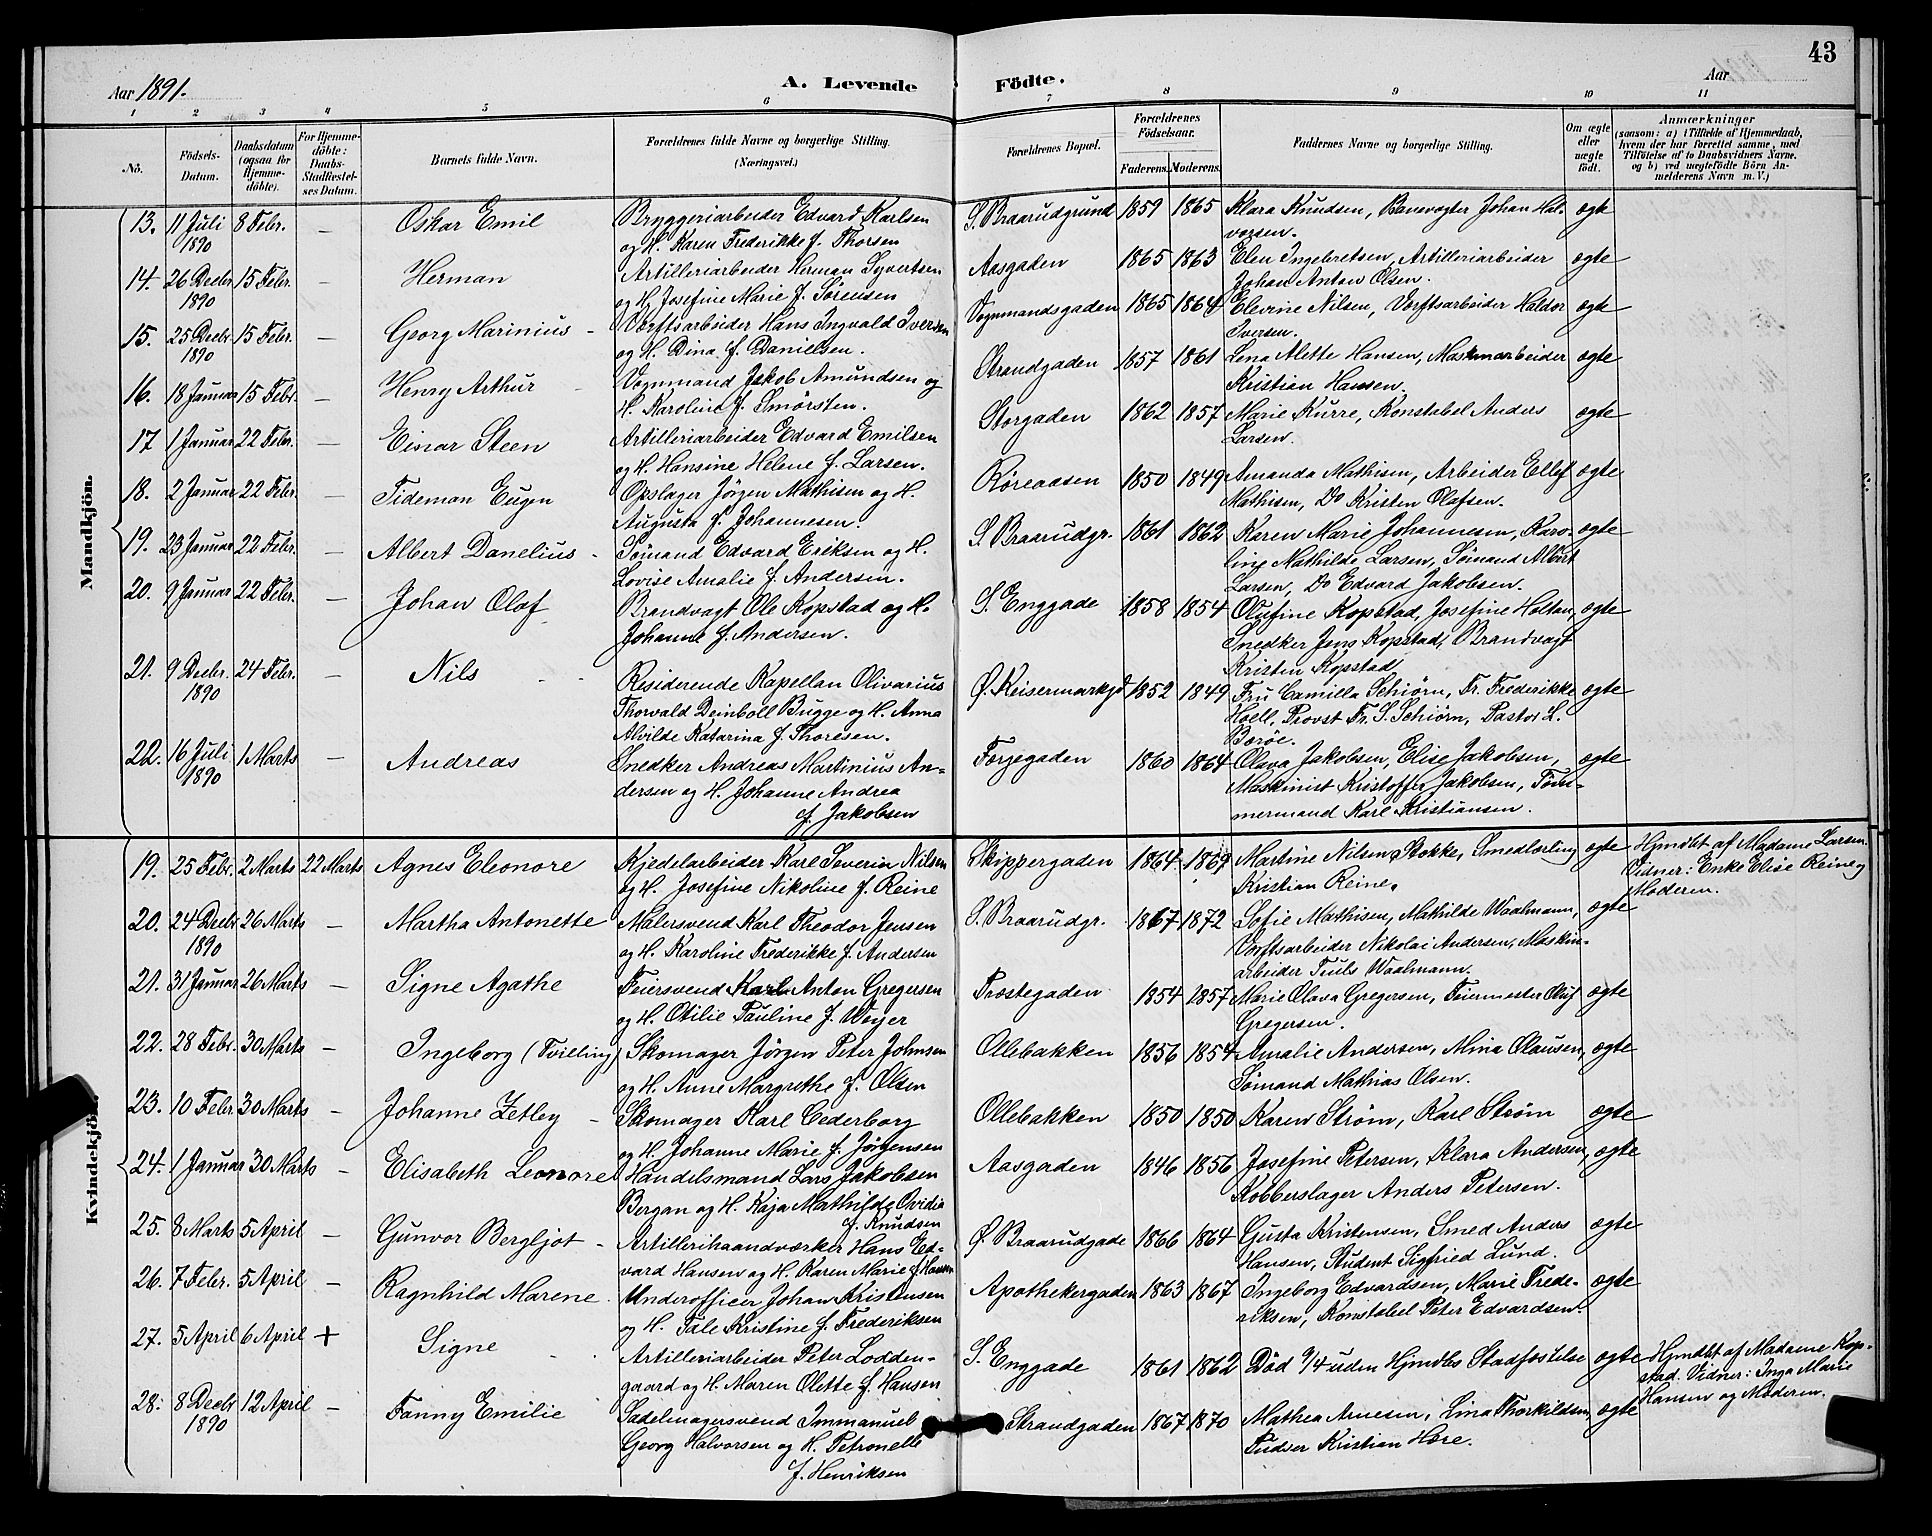 43
Aar 1891.
A. Levende Födte.
Aar
1 2 3 4 5 6 7 8 9 10 11
No.
Födsels-Datum.
Daabsdatum (ogsaa for Hjemmedöbte).
For Hjemmedöbte: Daabs-Stadfæstelses Datum.
Barnets fulde Navn.
Forældrenes fulde Navne og borgerlige Stilling. (Næringsvei.)
Forældrenes Bopæl.
Forældrenes Födselsaar.
Faderens. Moderens.
Faddernes Navne og borgerlige Stilling.
Om ægte eller uægte födt.
Anmærkninger
(saasom: a) i Tilfælde af Hjemmedaab, hvem der har forrettet samme, med Tilföielse af to Daabsvidners Navne, og b) ved uægtefödte Börn Anmelderens Navn m. V.)
Mandkjön.
13. 11 Juli 1890 8 Febr. — Oskar Emil Bryggeriarbeider Edvard Karlsen
og H. Karen Frederikke f. Thorsen S. Braarudgrund 1859 1865 Klara Knudsen, Banevogter Johan Hal-
vorsen. ægte
14. 26 Decbr 1890 15 Febr. — Herman Artilleriarbeider Herman Syvertsen
og H. Josefine Marie f. Sørensen Aasgaden 1865 1863 Elen Ingebretsen, Artilleriarbeider
Johan Anton Olsen. ægte
15. 25 Decbr 1890 15 Febr. — Georg Marinius Værftsarbeider Hans Ingvald Iversen
og H. Dina f. Danielsen. Vognmandsgaden 1865 1864 Elevine Nilsen, Værftsarbeider Haldor
Iversen. ægte
16. 18 Januar 15 Febr. — Henry Arthur Vognmand Jakob Amundsen og
H. Karoline f. Smørsten. Strandgaden 1857 1861 Lena Alette Hansen, Maskinarbeider
Kristian Hansen. ægte
17 1 Januar 22 Febr. — Einar Steen Artilleriarbeider Edvard Emilsen
og H. Hansine Helene f. Larsen. Storgaden 1862 1857 Marie Kurre, Konstabel Anders
Larsen. ægte
18. 2 Januar 22 Febr. — Tideman Eugen Opslager Jørgen Mathisen og H.
Augusta f. Johannesen. Røreaasen 1850 1849 Amanda Mathisen, Arbeider Ellef
Mathisen, Do Kristen Olafsen. ægte
19. 23 Januar 22 Febr. — Albert Danelius Sømand Edvard Eriksen og H.
Lovise Amalie f. Andersen. S. Braarudgr. 1861 1862 Karen Marie Johannesen, Karo-
line Mathilde Larsen, Sømand Albert
Larsen, Do Edvard Jakobsen. ægte
20. 9 Januar 22 Febr. — Johan Olaf Brandvagt Ole Kopstad og H.
Johanne f. Andersen. S. Enggade 1858 1854 Olufine Kopstad, Josefine Holtan,
Snedker Jens Kopstad, Brandvagt
Kristen Kopstad ægte
21. 9 Decbr. 1890 24 Febr. — Nils Residerende Kapellan Olivarius
Thorvald Deinboll Bugge og H. Anna
Alvilde Katarina f. Thoresen. Ø. Keisermarkgd 1852 1849 Fru Camilla Schiørn, Fr. Frederikke
Hoell, Provst Fr. S. Schiørn, Pastor L.
Barøe. ægte
22. 16 Juli 1890 1 Marts — Andreas Snedker Andreas Martinius An-
dersen og H. Johanne Andrea
f. Jakobsen Torjegaden 1860 1864 Olava Jakobsen, Elise Jakobsen,
Maskinist Kristoffer Jakobsen, Tøm-
mermand Karl Kristiansen. ægte
Kvindekjön.
19. 25 Febr. 2 Marts 22 Marts Agnes Eleonore Kjedelarbeider Karl Severin Nilsen
og H. Josefine Nikoline f. Reine Skippergaden 1864 1869 Martine Nilsen Stokke, Smedlærling
Kristian Reine. ægte Hjmdbt af Madame Larsen.
Vidner: Enke Elise Reine og
Moderen.
20. 24 Decbr 1890 26 Marts — Martha Antonette Malersvend Karl Theodor Jensen
og H. Karoline Frederikke f. Andersen S. Braarudgr. 1867 1872 Sofie Mathisen, Mathilde Waalmann,
Værftsarbeider Nikolai Andersen, Maskin-
arbeider Truls Waalmann. ægte
21. 31 Januar 26 Marts — Signe Agathe Feiersvend Karl Anton Gregersen
og H. Otilie Pauline f. Weyer Præstegaden 1854 1857 Marie Olava Gregersen, Feiermester Oluf
Gregersen. ægte
22. 28 Febr. 30 Marts — Ingeborg (Tvilling) Skomager Jørgen Peter Johnsen
og H. Anne Margrethe f. Olsen Ollebakken 1856 1854 Amalie Andersen, Mina Clausen,
Sømand Mathias Olsen. ægte
23. 10 Febr 30 Marts — Johanne Zetley Skomager Karl Cederborg
og H. Johanne Marie f. Jørgensen Ollebakken 1850 1850 Karen Strøm, Karl Strøm ægte
24. 1 Januar 30 Marts — Elisabeth Leonore Handelsmand Lars Jakobsen
Bergan og H. Kaja Mathilde Ovidia
f. Knudsen Aasgaden 1846 1856 Josefine Petersen, Klara Andersen,
Kobberslager Anders Petersen. ægte
25. 8 Marts 5 April — Gunvor Bergljot Artillerihaandværker Hans Ed-
vard Hansen og H. Karen Marie f. Hansen Ø. Braarudgade 1866 1864 Gusta Kristensen, Smed Anders
Hansen, Student Sigfried Lund. ægte
26. 7 Febr. 5 April — Ragnhild Marene Underofficer Johan Kristensen
og H. Tale Kristine f. Frederiksen Apothekergaden 1863 1867 Ingeborg Edvardsen, Marie Frede-
riksen, Konstabel Peter Edvardsen. ægte
27. 5 April 6 April + Signe Artilleriarbeider Peter Lodden-
gaard og H. Maren Olette f. Hansen S. Enggade 1861 1862 Død 9/4 uden Hjmdbs Stadfæstelse ægte Hjmdbt af Madame Kop-
stad. Vidner: Inga Marie
Hansen og Moderen.
28. 8 Decbr 1890 12 April — Fanny Emilie Sadelmagersvend Immanuel
Georg Halvorsen og H. Petronelle
f. Henriksen Strandgaden 1867 1870 Mathea Arnesen, Lina Thorkildsen,
Pudser Kristian Høre. ægte